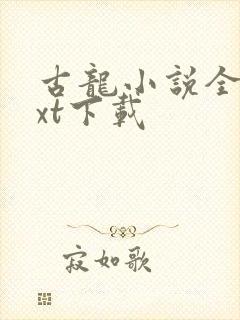 古龍小説全
xt下載
寂如歌